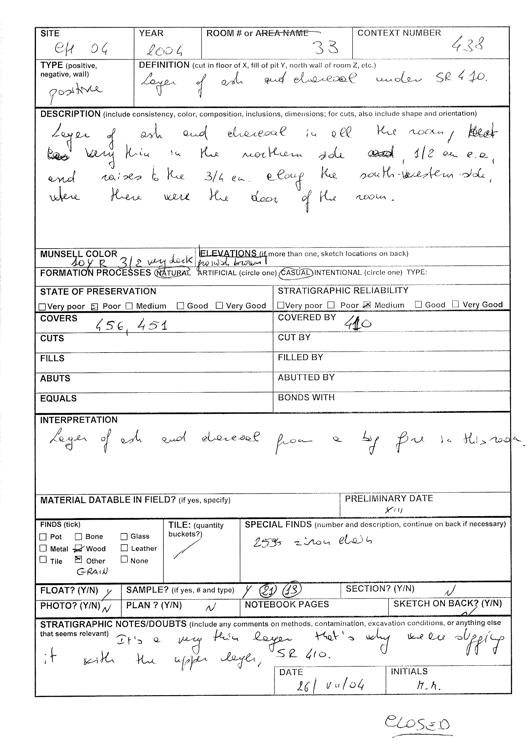 SITE YEAR ROOM # or AREA NAME CONTEXT NUMBER
CH 04 2004 33 438
TYPE (positive, negative, wall) DEFINITION (cut in floor of X, fill of pit Y, north wall of room Z, etc.)
positive Layer of ash and charcoal under SR 410.
DESCRIPTION (include consistency, color, composition, inclusions, dimensions; for cuts, also include shape and orientation)
Layer of ash and charcoal in all the room,
very thin in the northern side, 1/2 cm c.a,
and raises to the 3/4 cm. along the south-western side,
where there were the door of the room.
MUNSELL COLOR ELEVATIONS (if more than one, sketch locations on back)
10YR 3/2 very dark greyish brown
FORMATION PROCESSES NATURAL ARTIFICIAL (circle one) CASUAL INTENTIONAL (circle one) TYPE:
STATE OF PRESERVATION STRATIGRAPHIC RELIABILITY
Very poor Poor Medium Good Very Good Very poor Poor Medium Good Very Good
COVERS 456, 451 COVERED BY 410
CUTS CUT BY
FILLS FILLED BY
ABUTS ABUTTED BY
EQUALS BONDS WITH
INTERPRETATION
Layer of ash and charcoal from a big fire in this room.
MATERIAL DATABLE IN FIELD? (if yes, specify) PRELIMINARY DATE
XIII
FINDS (tick) TILE: (quantity buckets?) SPECIAL FINDS (number and description, continue on back if necessary)
Pot Bone Glass
Metal Wood Leather
Tile Other None
GRAIN
FLOAT? (Y/N) y SAMPLE? (if yes, # and type) Y 21 13 SECTION? (Y/N) N
PHOTO? (Y/N) N PLAN ? (Y/N) N NOTEBOOK PAGES SKETCH ON BACK? (Y/N) N
STRATIGRAPHIC NOTES/DOUBTS (include any comments on methods, contamination, excavation conditions, or anything else
that seems relevant) It's a very thin layer that's why we are digging
it with the upper layer, SR 410.
DATE INITIALS
26/VII/04
CLOSED